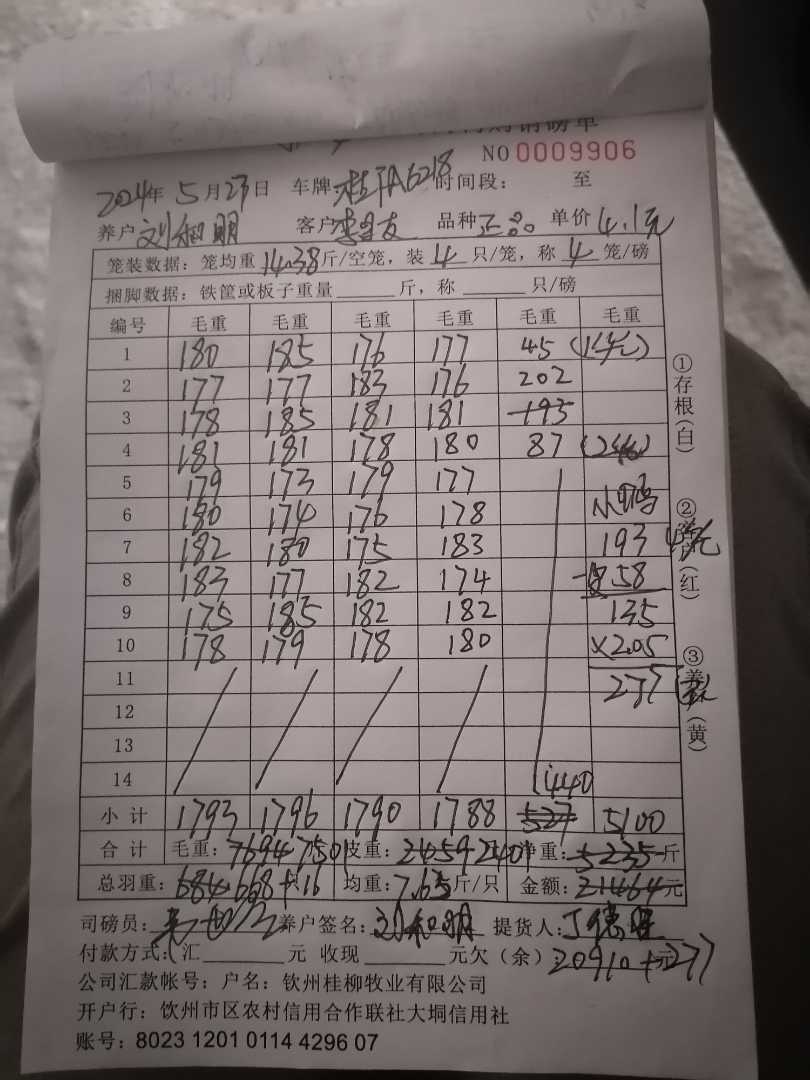 购销磅单
NO 0009906
2024年 5月27日 车牌:桂A6218 时间段: 至
养户 刘和明 客户 李 友 品种 正品 单价 4.1元
笼装数据: 笼均重 14.38 斤/空笼, 装 4 只/笼, 称 4 笼/磅
捆脚数据: 铁筐或板子重量 斤, 称 只/磅
编号 毛重 毛重 毛重 毛重 毛重 毛重
1 180 185 176 177 45
2 177 177 183 176 202
3 178 185 181 181 193
4 181 181 178 180 87
5 179 173 179 177
6 180 174 176 178 小鸭
7 182 180 175 183 193
8 183 177 182 174 -58
9 175 185 182 182 135
10 178 179 178 180 ×2.05
11 277
12
13
14 440
小计 1793 1796 1790 1788 527 5100
合计 毛重: 7694 7501 皮重: 2459 2401 净重: 5235 斤
总羽重: 684 668 +16 均重: 7.65 斤/只 金额: 21464 元
司磅员: 养户签名: 刘和明 提货人: 丁德
付款方式: 汇 元 收现 元 欠(余): 20910+277
公司汇款帐号: 户名: 钦州桂柳牧业有限公司
开户行: 饮州市区农村信用合作联社大垌信用社
账号: 8023 1201 0114 4296 07
①存根(白)
(红)
③养 (黄)